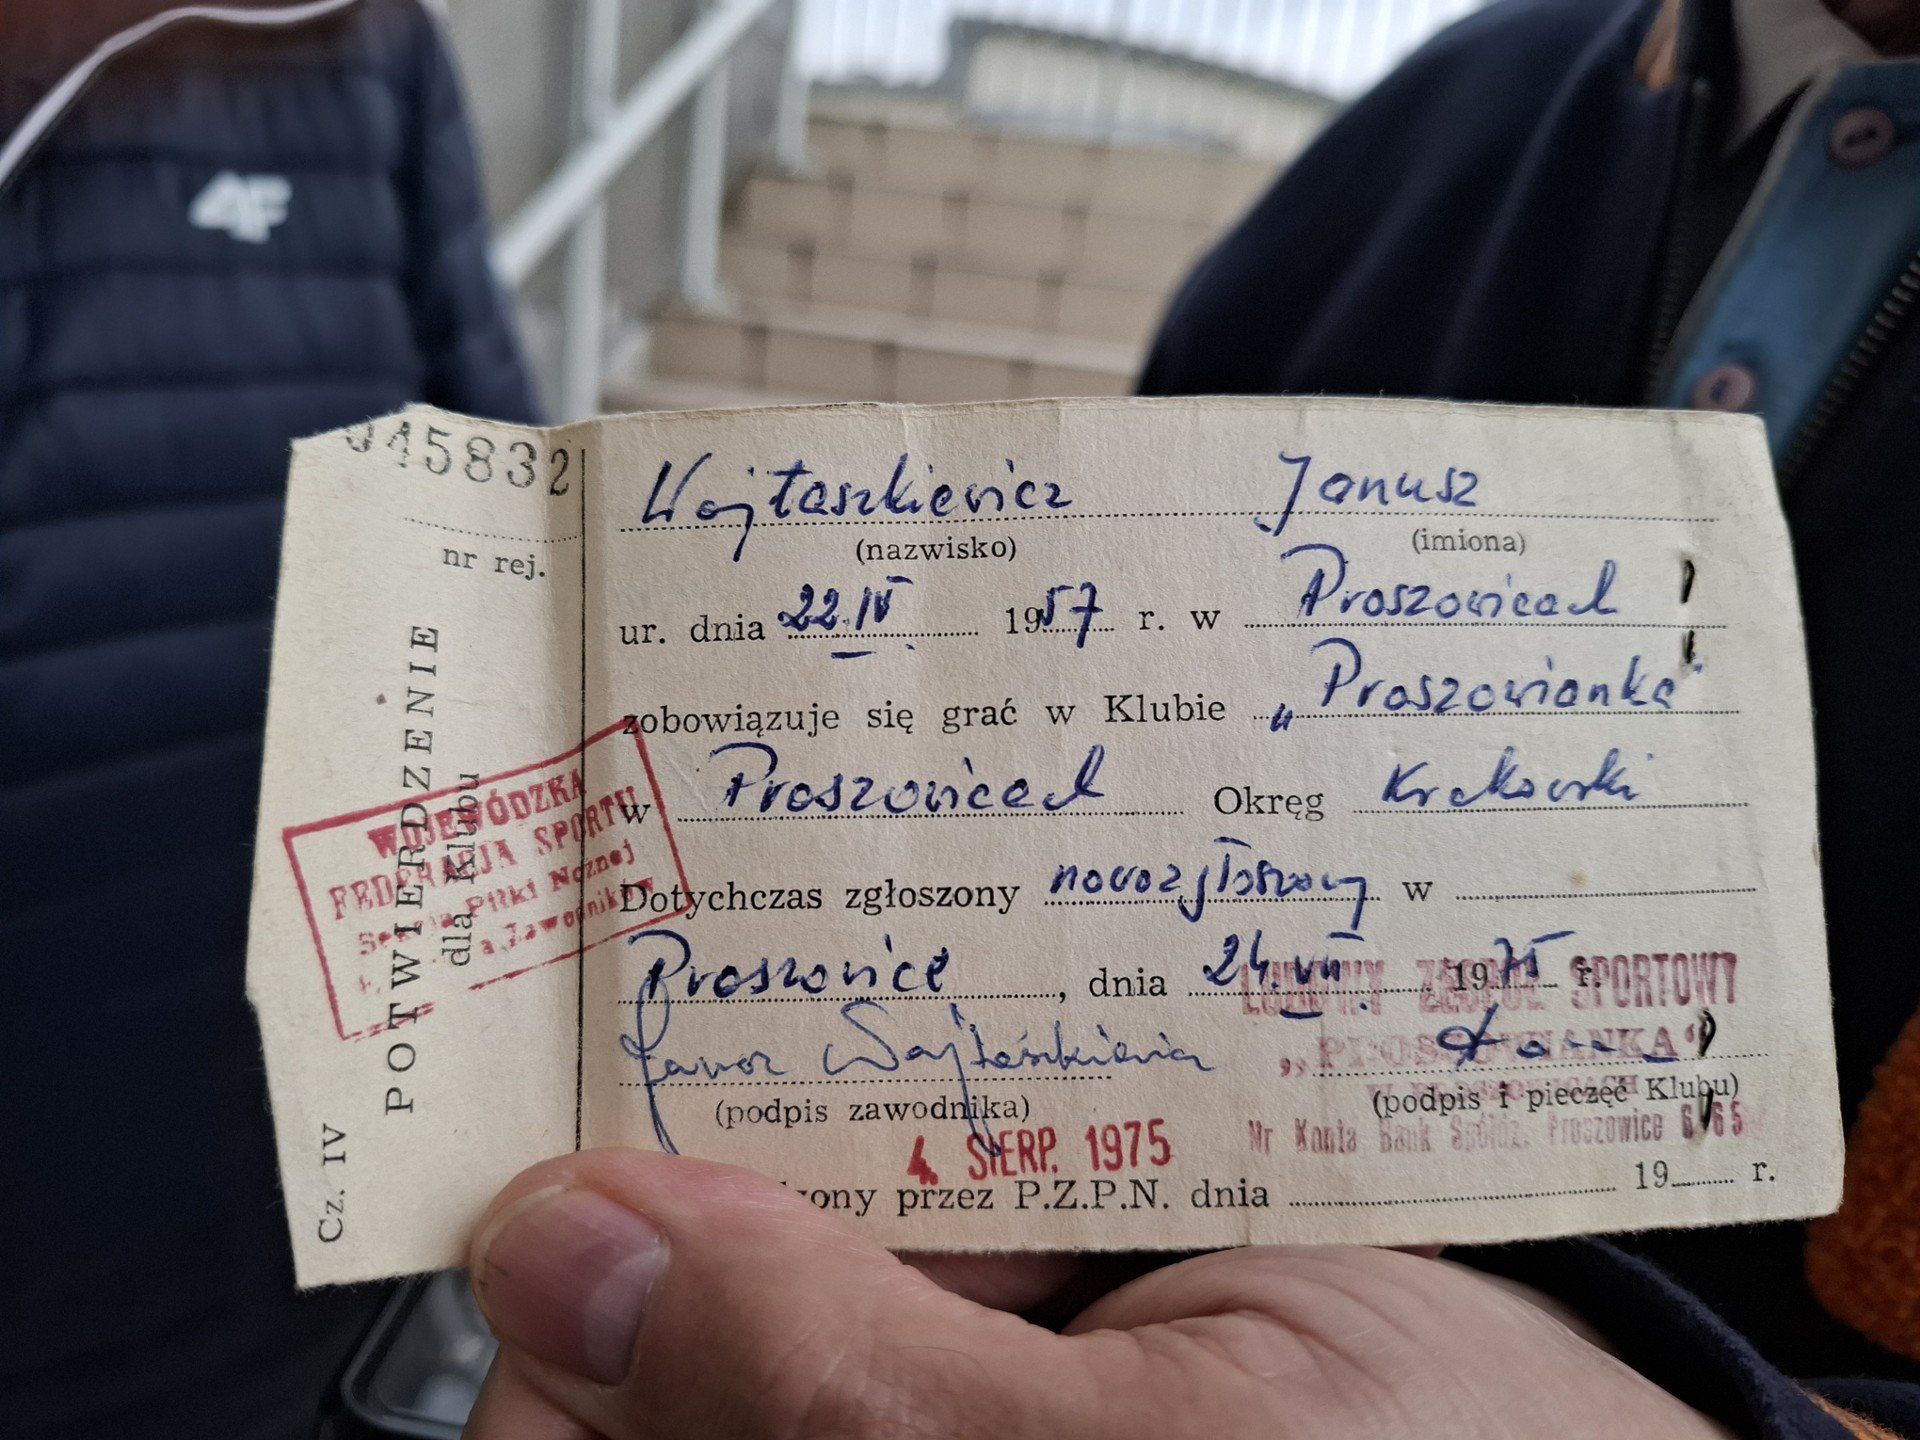 4F
045832
nr rej.
POTWIERDZENIE
dla Klubu
Cz. IV
WOJEWÓDZKA
FEDERACJA SPORTU
Sekcja Piłki Nożnej
Wojtaszkiewicz Janusz
(nazwisko) (imiona)
ur. dnia 22.IV 1957 r. w Proszowicach
zobowiązuje się grać w Klubie „Proszowianka"
w Proszowicach Okręg Krakowski
Dotychczas zgłoszony nowozgłoszony w
Proszowice, dnia 24.VII. 1975 r.
LUDOWY ZESPÓŁ SPORTOWY
„PROSZOWIANKA"
W PROSZOWICACH
Nr Konta Bank Spółdz. Proszowice 6/65
Janusz Wojtaszkiewicz
(podpis zawodnika) (podpis i pieczęć Klubu)
4. SIERP. 1975
przez P.Z.P.N. dnia 19 r.